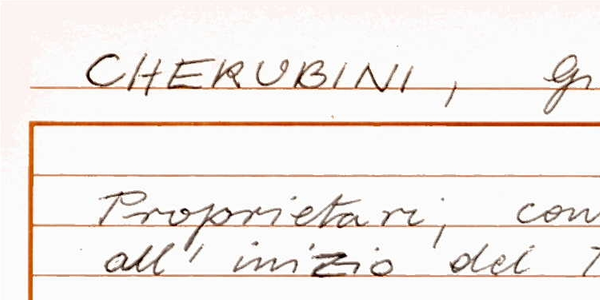 CHERUBINI, G
Proprietari, con
all' inizio del